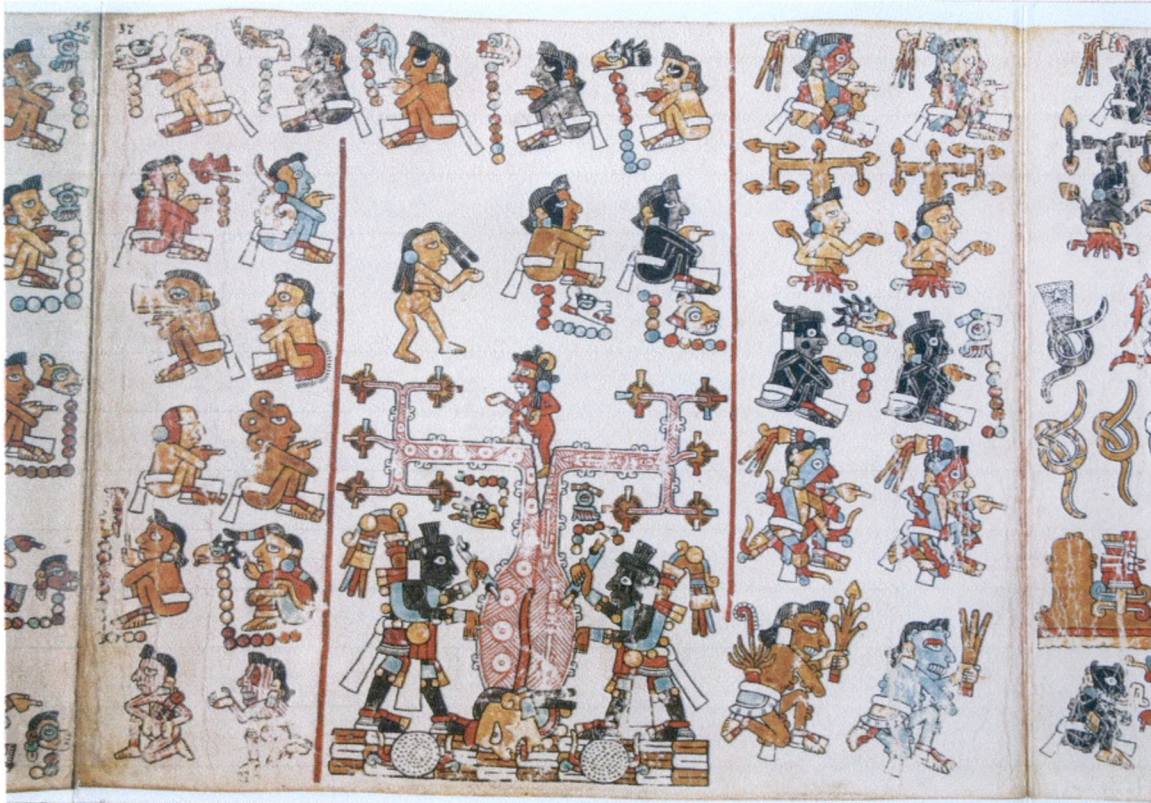 36
37